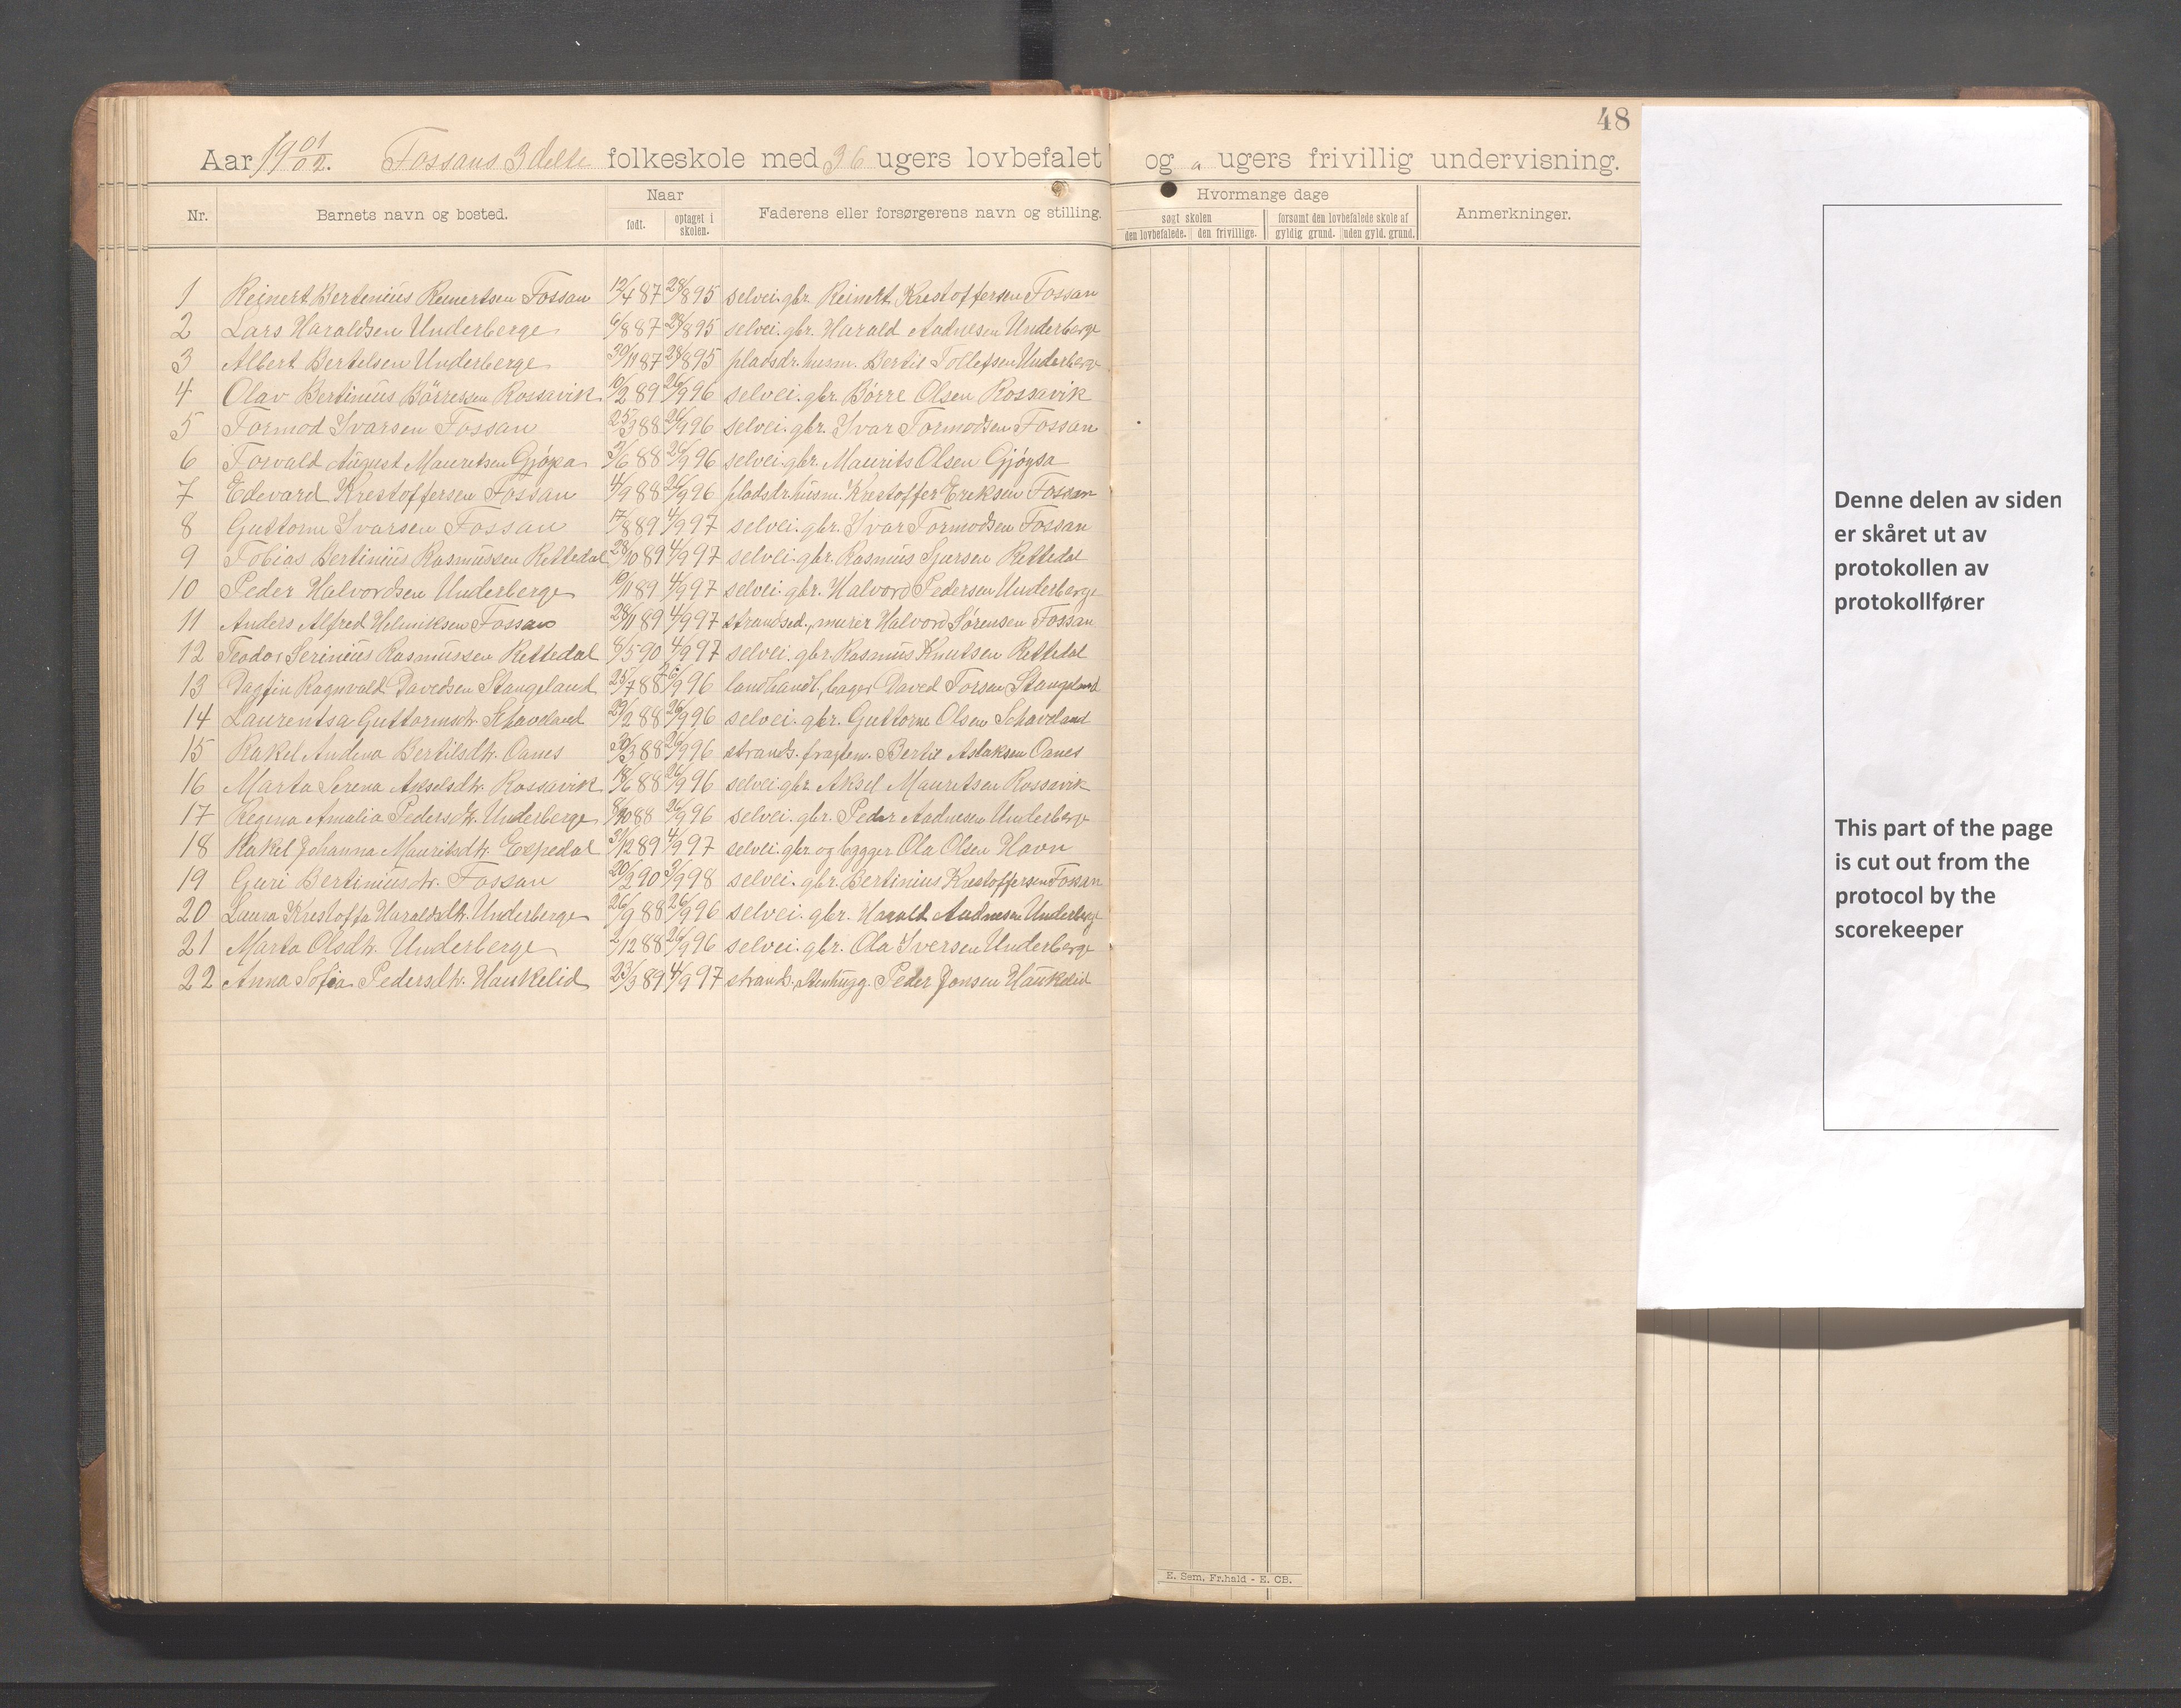 48
Aar 1901/02. Fossans 3 delte folkeskole med 36 ugers lovbefalet og ugers frivillig undervisning.
Nr. Barnets navn og bosted. Naar født. optaget i skolen. Faderens eller forsørgerens navn og stilling. Hvormange dage søgt skolen den lovbefalede. den frivillige. forsømt den lovbefalede skole af gyldig grund. uden gyld. grund. Anmerkninger.
1 Reinert Bertinius Reinertsen Fossan 12/4 87 28/8 95 selvei. gbr. Reinert Krestoffersen Fossan
2 Lars Haraldsen Underberge 6/8 87 28/8 95 selvei. gbr. Harald Aadnesen Underberge
3 Albert Bertelsen Underberge 30/11 87 28/8 95 pladsdr. husm. Bertil Tollefsen Underberge
4 Olav Bertinius Börresen Rossavik 10/2 89 26/9 96 selvei. gbr. Börre Olsen Rossavik
5 Tormod Ivarsen Fossan 25/3 88 26/9 96 selvei. gbr. Ivar Tormodsen Fossan
6 Torvald August Mauritsen Gjøysa /6 88 26/9 96 selvei. gbr. Maurits Olsen Gjøysa
7 Edevard Krestoffersen Fossan 4/9 88 26/9 96 pladsdr. husm. Krestoffer Ereksen Fossan
8 Guttorm Ivarsen Fossan 17/8 89 4/9 97 selvei. gbr. Ivar Tormodsen Fossan
9 Tobias Bertinius Rasmussen Rettedal 28/10 89 4/9 97 selvei. gbr. Rasmus Sjursen Rettedal
10 Peder Halvordsen Underberge 10/11 89 4/9 97 selvei. gbr. Halvord Pedersen Underberge
11 Anders Alfred Helmiksen Fossan 28/11 89 4/9 97 strandsed., murer Halvord Sørensen Fossan
12 Teodor Serinius Rasmussen Rettedal 6/5 90 4/9 97 selvei. gbr. Rasmus Knutsen Rettedal
13 Dagfin Ragnvald Davedsen Stangeland 25/7 88 26/9 96 landhandl., bager Daved Torsen Stangeland
14 Laurentsa Guttormsdtr. Schaveland 29/2 88 26/9 96 selvei. gbr. Guttorm Olsen Schaveland
15 Rakel Andina Bertilsdtr. Oanes 30/3 88 26/9 96 strands. fragtem. Bertil Aslaksen Oanes
16 Marta Serena Akselsdtr. Rossavik 18/6 88 26/9 96 selvei. gbr. Aksel Mauritsen Rossavik
17 Regina Amalia Pedersdtr. Underberge 8/10 88 26/9 96 selvei. gbr. Peder Aadnesen Underberge
18 Rakel Johanna Mauritsdtr. Espedal 31/12 89 4/9 97 selvei. gbr. og bygger Ola Olsen Havn
19 Guri Bertiniusdtr. Fossan 20/2 90 3/9 98 selvei. gbr. Bertinius Krestoffersen Fossan
20 Laura Krestoffa Haraldsdtr. Underberge 26/9 88 26/9 96 selvei. gbr. Harald Aadnesen Underberge
21 Marta Olsdtr. Underberge 2/12 88 26/9 96 selvei. gbr. Ola Iversen Underberge
22 Anna Sofia Pedersdtr. Haukelid 23/3 89 4/9 97 strands. stenhugg. Peder Jonsen Haukelid
E. Sem, Fr.hald - E. CB.
Denne delen av siden
er skåret ut av
protokollen av
protokollfører
This part of the page
is cut out from the
protocol by the
scorekeeper